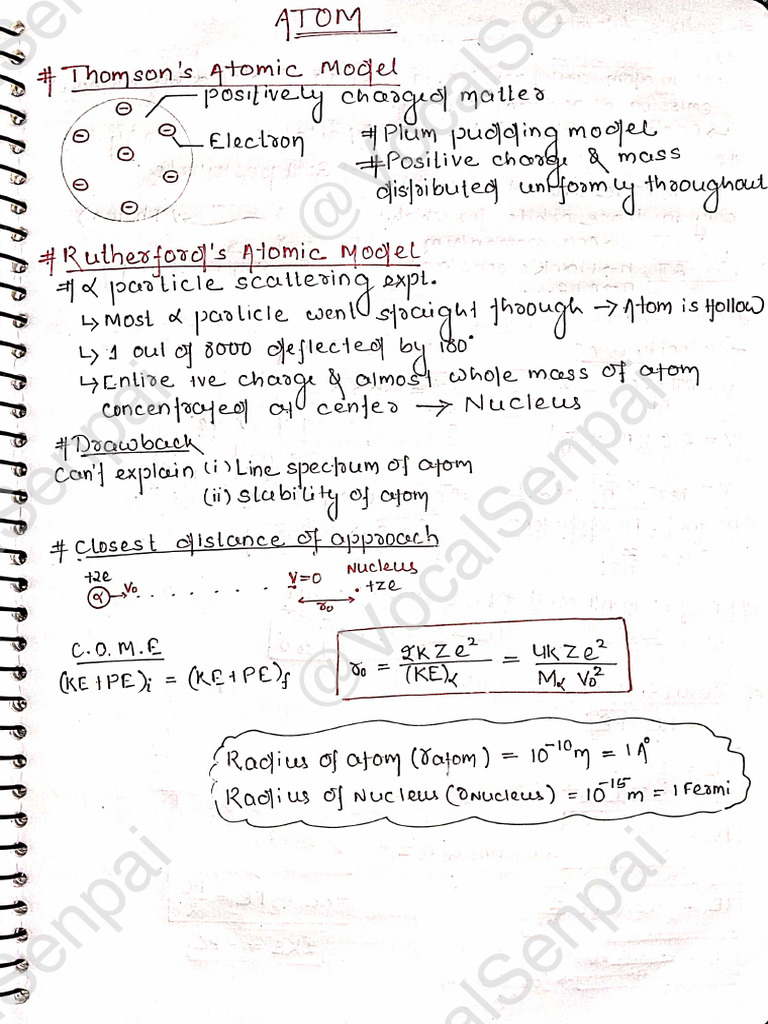 ATOM
# Thomson's Atomic Model
positively charged matter
Electron
# Plum pudding model
# Positive charge & mass
distributed uniformly throughout
# Rutherford's Atomic Model
# α particle scattering expt.
↳ Most α particle went straight through → Atom is Hollow
↳ 1 out of 8000 deflected by 180°
↳ Entire +ve charge & almost whole mass of atom
concentrated at center → Nucleus
# Drawback
Can't explain (i) Line spectrum of atom
(ii) Stability of atom
# Closest distance of approach
+2e α → V₀ . . . . . . . V=0 r₀ Nucleus +ze
C.O.M.E
(KE+PE)i = (KE+PE)f
r₀ = 2KZe²/(KE)α = 4KZe²/Mα V₀²
Radius of atom (ratom) = 10⁻¹⁰m = 1A°
Radius of Nucleus (rNucleus) = 10⁻¹⁵m = 1 Fermi
@VocalSenpai